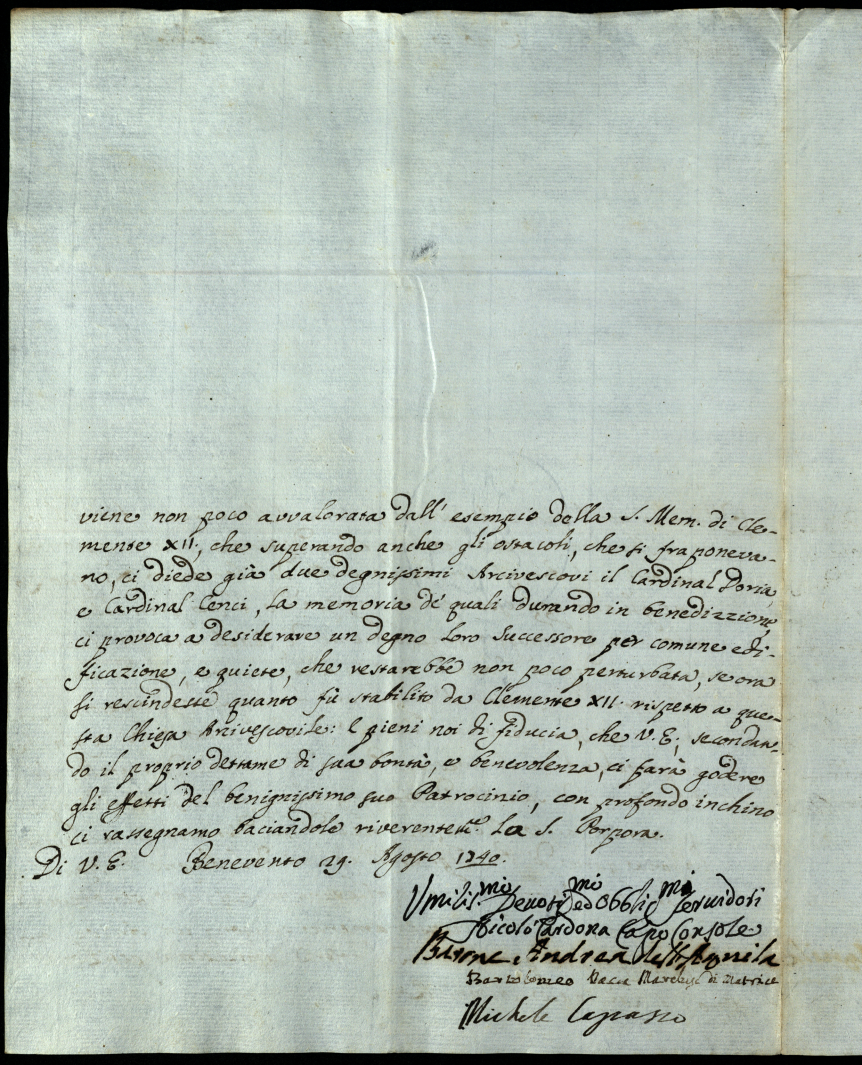 viene non poco avvalorata dall' esempio della S. Mem. di Cle-
mente XII., che superando anche gli ostacoli, che si fraponeva-
no, ci diede già due degnissimi Arcivescovi il Cardinal Doria,
e Cardinal Cenci, la memoria de' quali durando in benedizzione,
ci provoca a desiderare un degno loro Successore per comune edi-
ficazione, e quiete, che restarebbe non poco perturbata, se ora
si rescindesse quanto fù stabilito da Clemente XII. rispetto a que-
sta Chiesa Arcivescovile: E pieni noi di fiducia, che V. E., secondan-
do il proprio dettame di sua bontà, e benevolenza, ci farà godere
gli effetti del benignissimo suo Patrocinio, con profondo inchino
ci rassegnamo baciandole riverentem.te la S. Porpora.
Di V. E. Benevento 29. Agosto 1740.
Umiliss.mi Devotis.mi ed Obblig.mi Servidori
Nicolò Cardona Capo Console
Barone Andrea dell'Aquila
Bartolomeo Pacca Marchese di Matrice
Michele Capasso